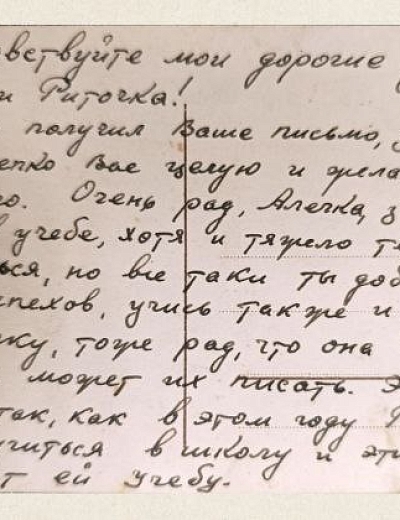 вствуйте мои дорогие
и Риточка!
получил Ваше письмо,
епко Вас целую и жела
о. Очень рад, Алечка, з
в учебе, хотя и тяжело т
ься, но все таки ты доб
спехов, учись также и
ку, тоже рад, что она
может их писать. Э
так, как в этом году
учиться в школу и эт
т ей учебу.